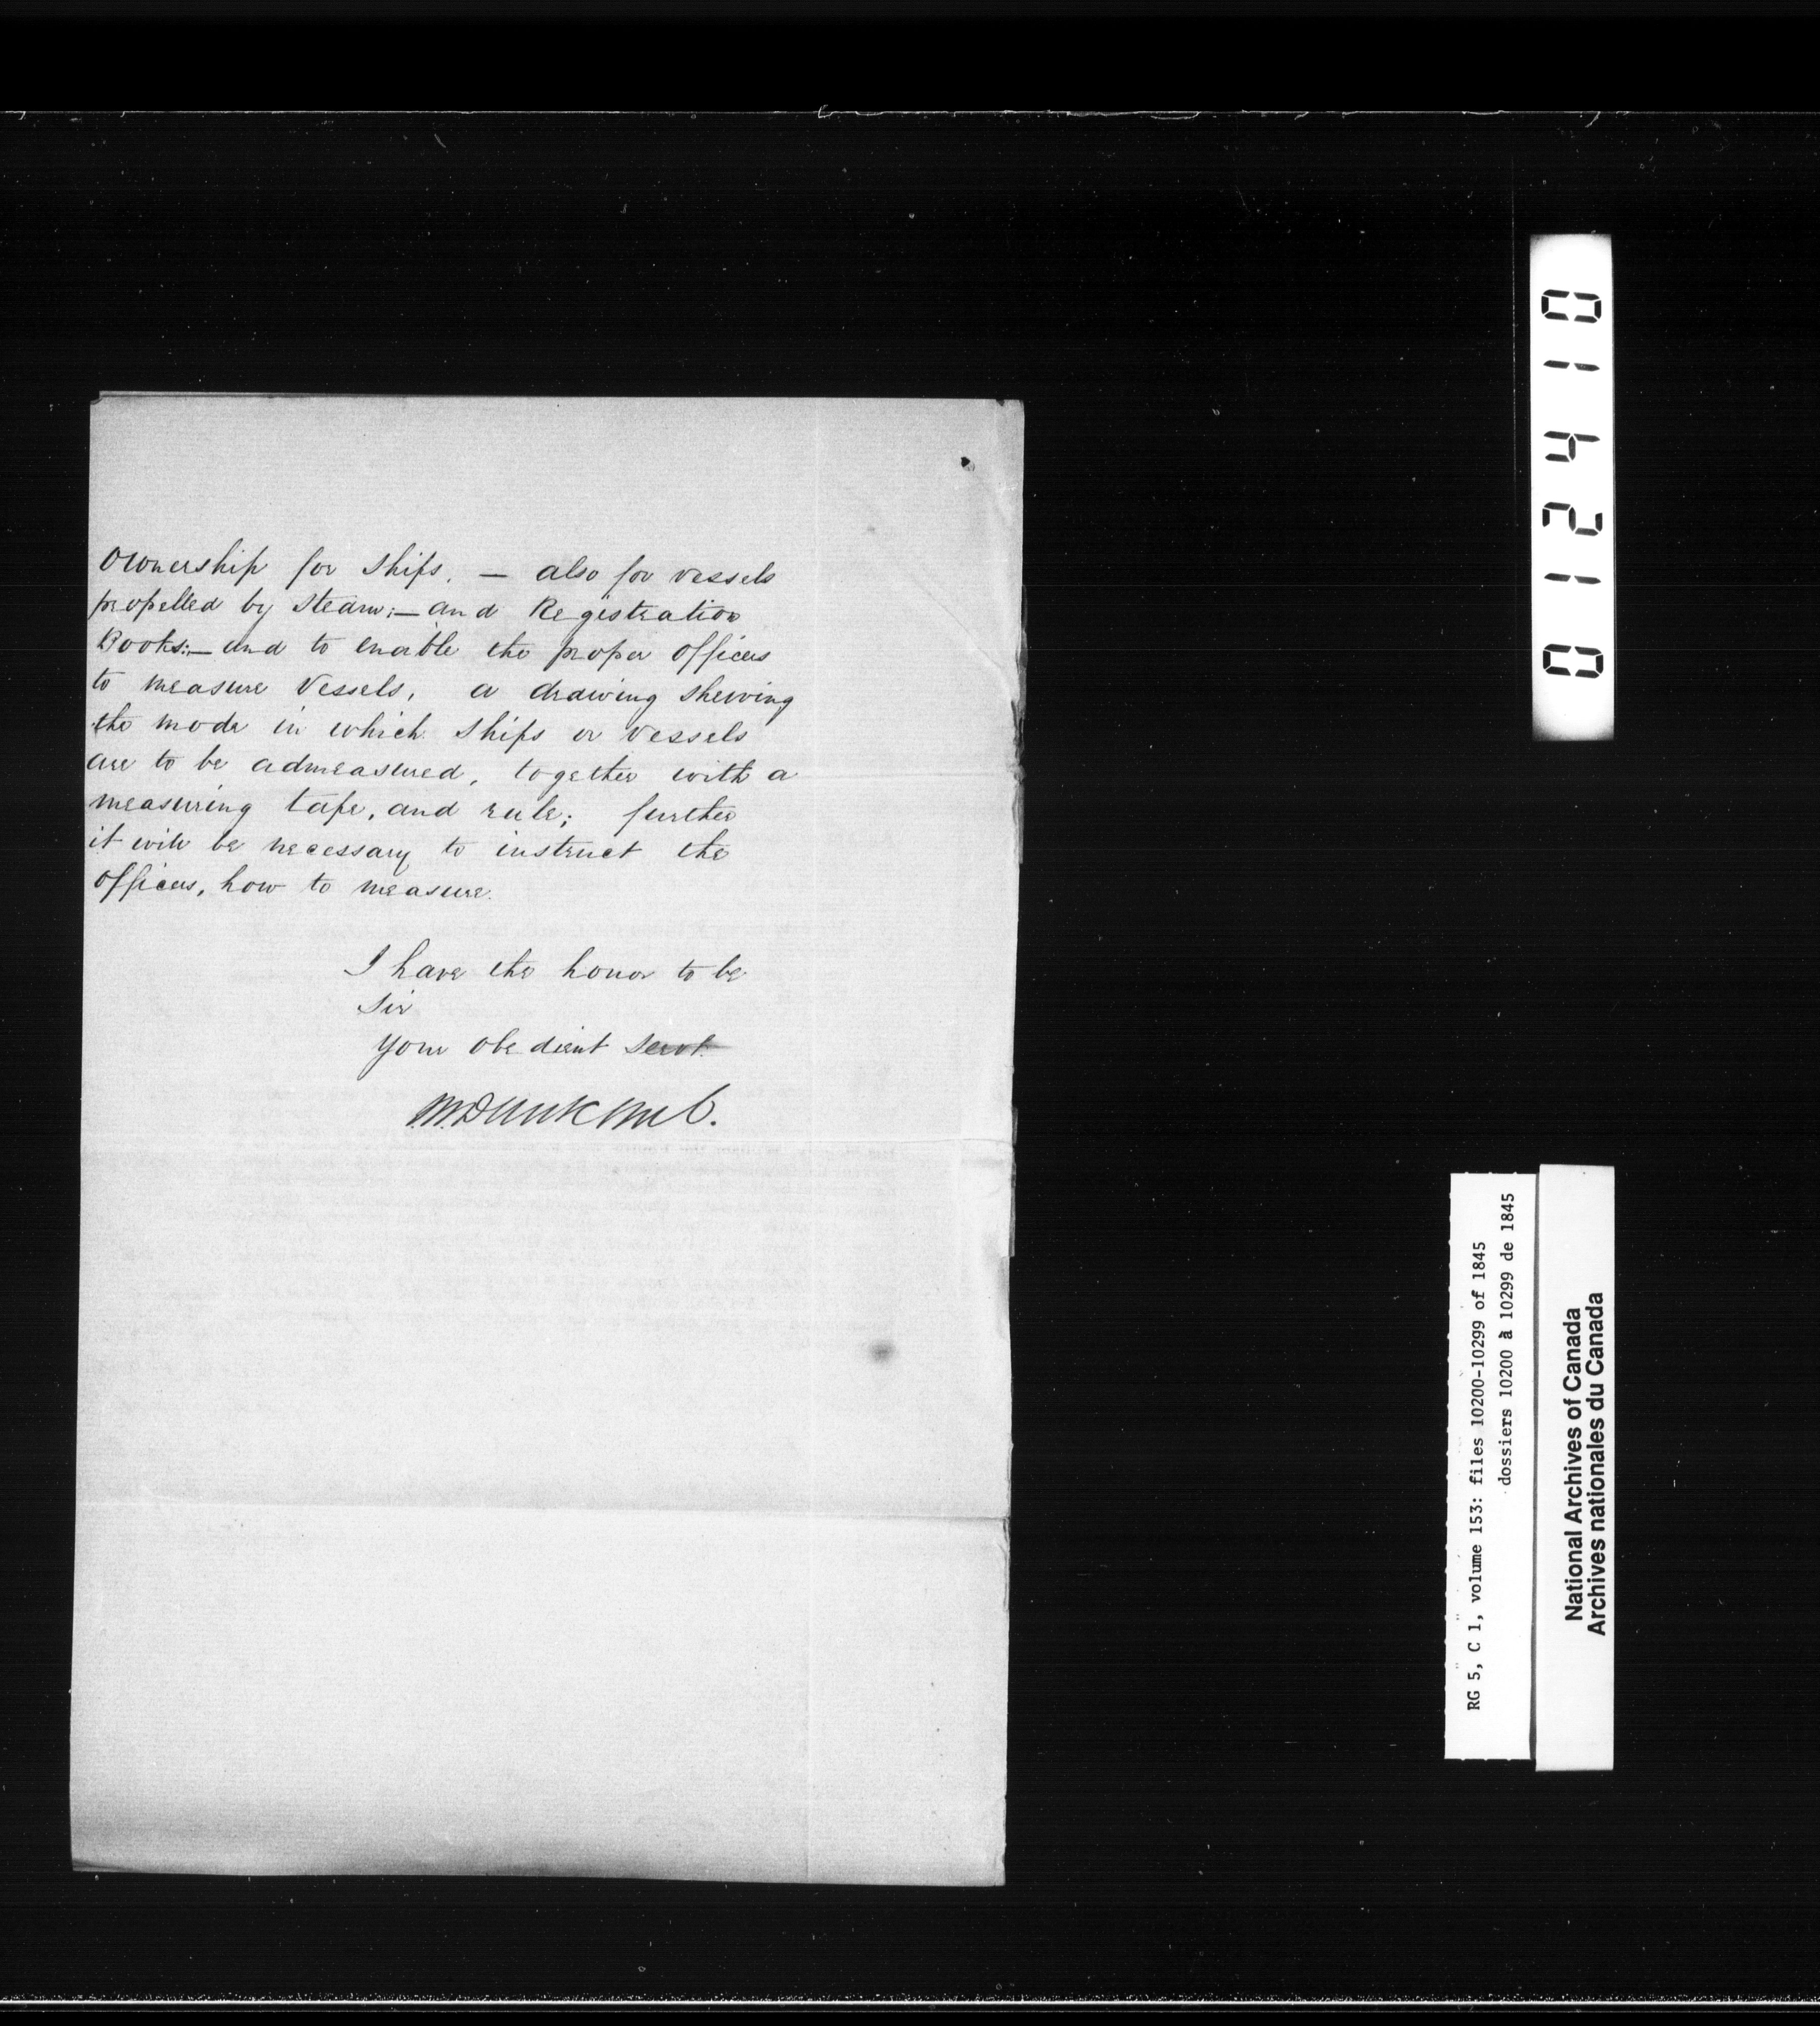 Ownership for Ships. — also for vessels
propelled by steam; — and Registration
Books: — and to enable the proper officers
to measure Vessels, a drawing shewing
the mode in which Ships or Vessels
are to be admeasured, together with a
measuring tape, and rule; further
it will be necessary to instruct the
officers, how to measure.
I have the honor to be
Sir
your obedient Servt.
011420
RG 5, C 1, volume 153: files 10200-10299 of 1845
dossiers 10200 à 10299 de 1845
National Archives of Canada
Archives nationales du Canada